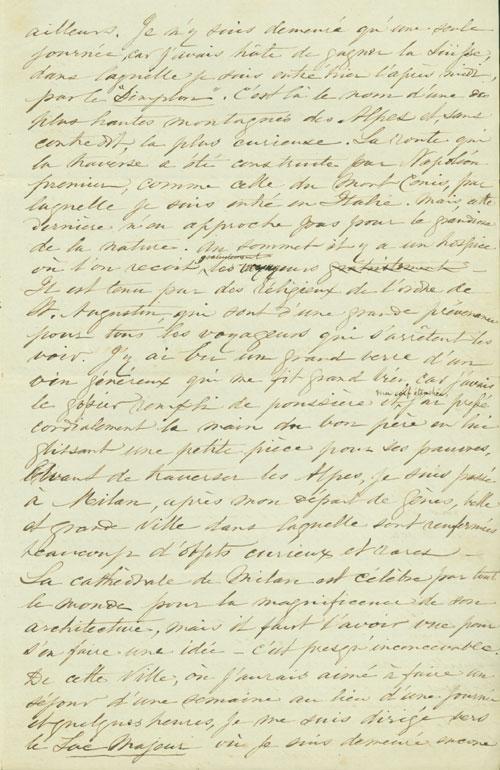 ailleurs. Je n'y suis demeuré qu'une seule
journée, car j'avais hâte de gagner la Suisse,
dans laquelle je suis entré hier l'après midi
par le "Simplon". C'est là le nom d'une des
plus hautes montagnes des Alpes et sans
contredit, la plus curieuse. La route qui
la traverse a été construite par Napoléon
premier, comme celle du Mont Cenis, par
laquelle je suis entré en Italie. mais, cette
dernière n'en approche pas pour le grandiose
de la nature. Au sommet il y a un hospice
où l'on reçoit gratuitement les voyageurs gratuitement -
Il est tenu par des religieux de l'ordre de
St. Augustin, qui sont d'une grande prévenance
pour tous les voyageurs qui s'arrêtent les
voir. J'y ai bu un grand verre d'un
vin généreux qui me fit grand bien, car j'avais
le gosier rempli de poussière et, ai pressé
cordialement la main du bon père en lui
glissant une petite pièce pour ses pauvres.
Avant de traverser les Alpes, je suis passé
à Milan, après mon départ de Gênes, belle
et grande ville dans laquelle sont renfermés
beaucoup d'objets curieux et rares -
La cathédrale de Milan est célèbre par tout
le monde pour la magnificence de son
architecture, mais il faut l'avoir vue pour
s'en faire une idée - c'est presqu'inconcevable.
De cette ville, où j'aurais aimé à faire un
séjour d'une semaine au lieu d'une journée
et quelques heures, je me suis dirigé vers
le Lac Majeur où je suis demeuré encore